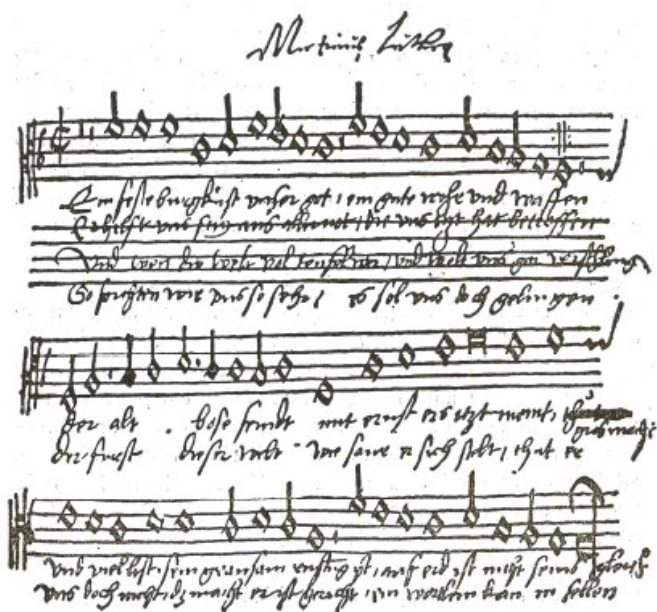 Martinus Luther
Ein feste burg ist unser got / ein gute wehr und waffen
Er hilft uns frey aus aller not / die uns itzt hat betroffen
Und wen die welt vol teuffel wer / und wolt uns gar verschling
So forchten wir uns so sehr / es sol uns doch gelingen
der alt bose feindt mit ernst ers itzt meint, gros macht
der furst dieser welt wie saur er sich stelt / thut er
und viel list, sein grausam rustug ist, auf erd ist nicht seins gleich
uns doch nicht dz macht er ist gericht / ein wortlein kan in fellen